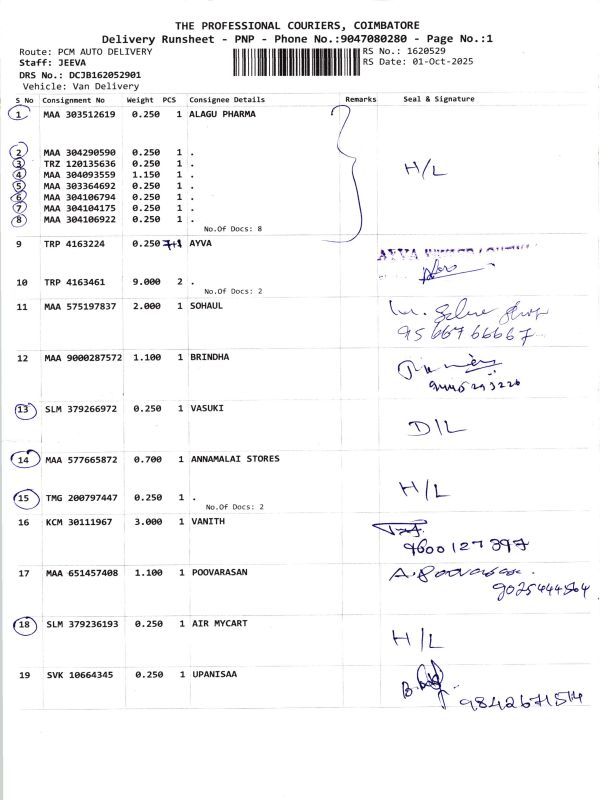 THE PROFESSIONAL COURIERS, COIMBATORE
Delivery Runsheet - PNP - Phone No.:9047080280 - Page No.:1
Route: PCM AUTO DELIVERY RS No.: 1620529
Staff: JEEVA RS Date: 01-Oct-2025
DRS No.: DCJB162052901
Vehicle: Van Delivery
S No Consignment No Weight PCS Consignee Details Remarks Seal & Signature
1 MAA 303512619 0.250 1 ALAGU PHARMA
2 MAA 304290590 0.250 1 .
3 TRZ 120135636 0.250 1 .
4 MAA 304093559 1.150 1 . H/L
5 MAA 303364692 0.250 1 .
6 MAA 304106794 0.250 1 .
7 MAA 304104175 0.250 1 .
8 MAA 304106922 0.250 1 .
No.Of Docs: 8
9 TRP 4163224 0.250 1 AYVA
AYVA
10 TRP 4163461 9.000 2 .
No.Of Docs: 2
11 MAA 575197837 2.000 1 SOHAUL
95 667 66667
12 MAA 9000287572 1.100 1 BRINDHA
13 SLM 379266972 0.250 1 VASUKI
D/L
14 MAA 577665872 0.700 1 ANNAMALAI STORES
H/L
15 TMG 200797447 0.250 1 .
No.Of Docs: 2
16 KCM 30111967 3.000 1 VANITH
9600127397
17 MAA 651457408 1.100 1 POOVARASAN
A. Poovarasan.
9025444564
18 SLM 379236193 0.250 1 AIR MYCART
H/L
19 SVK 10664345 0.250 1 UPANISAA
9842671514